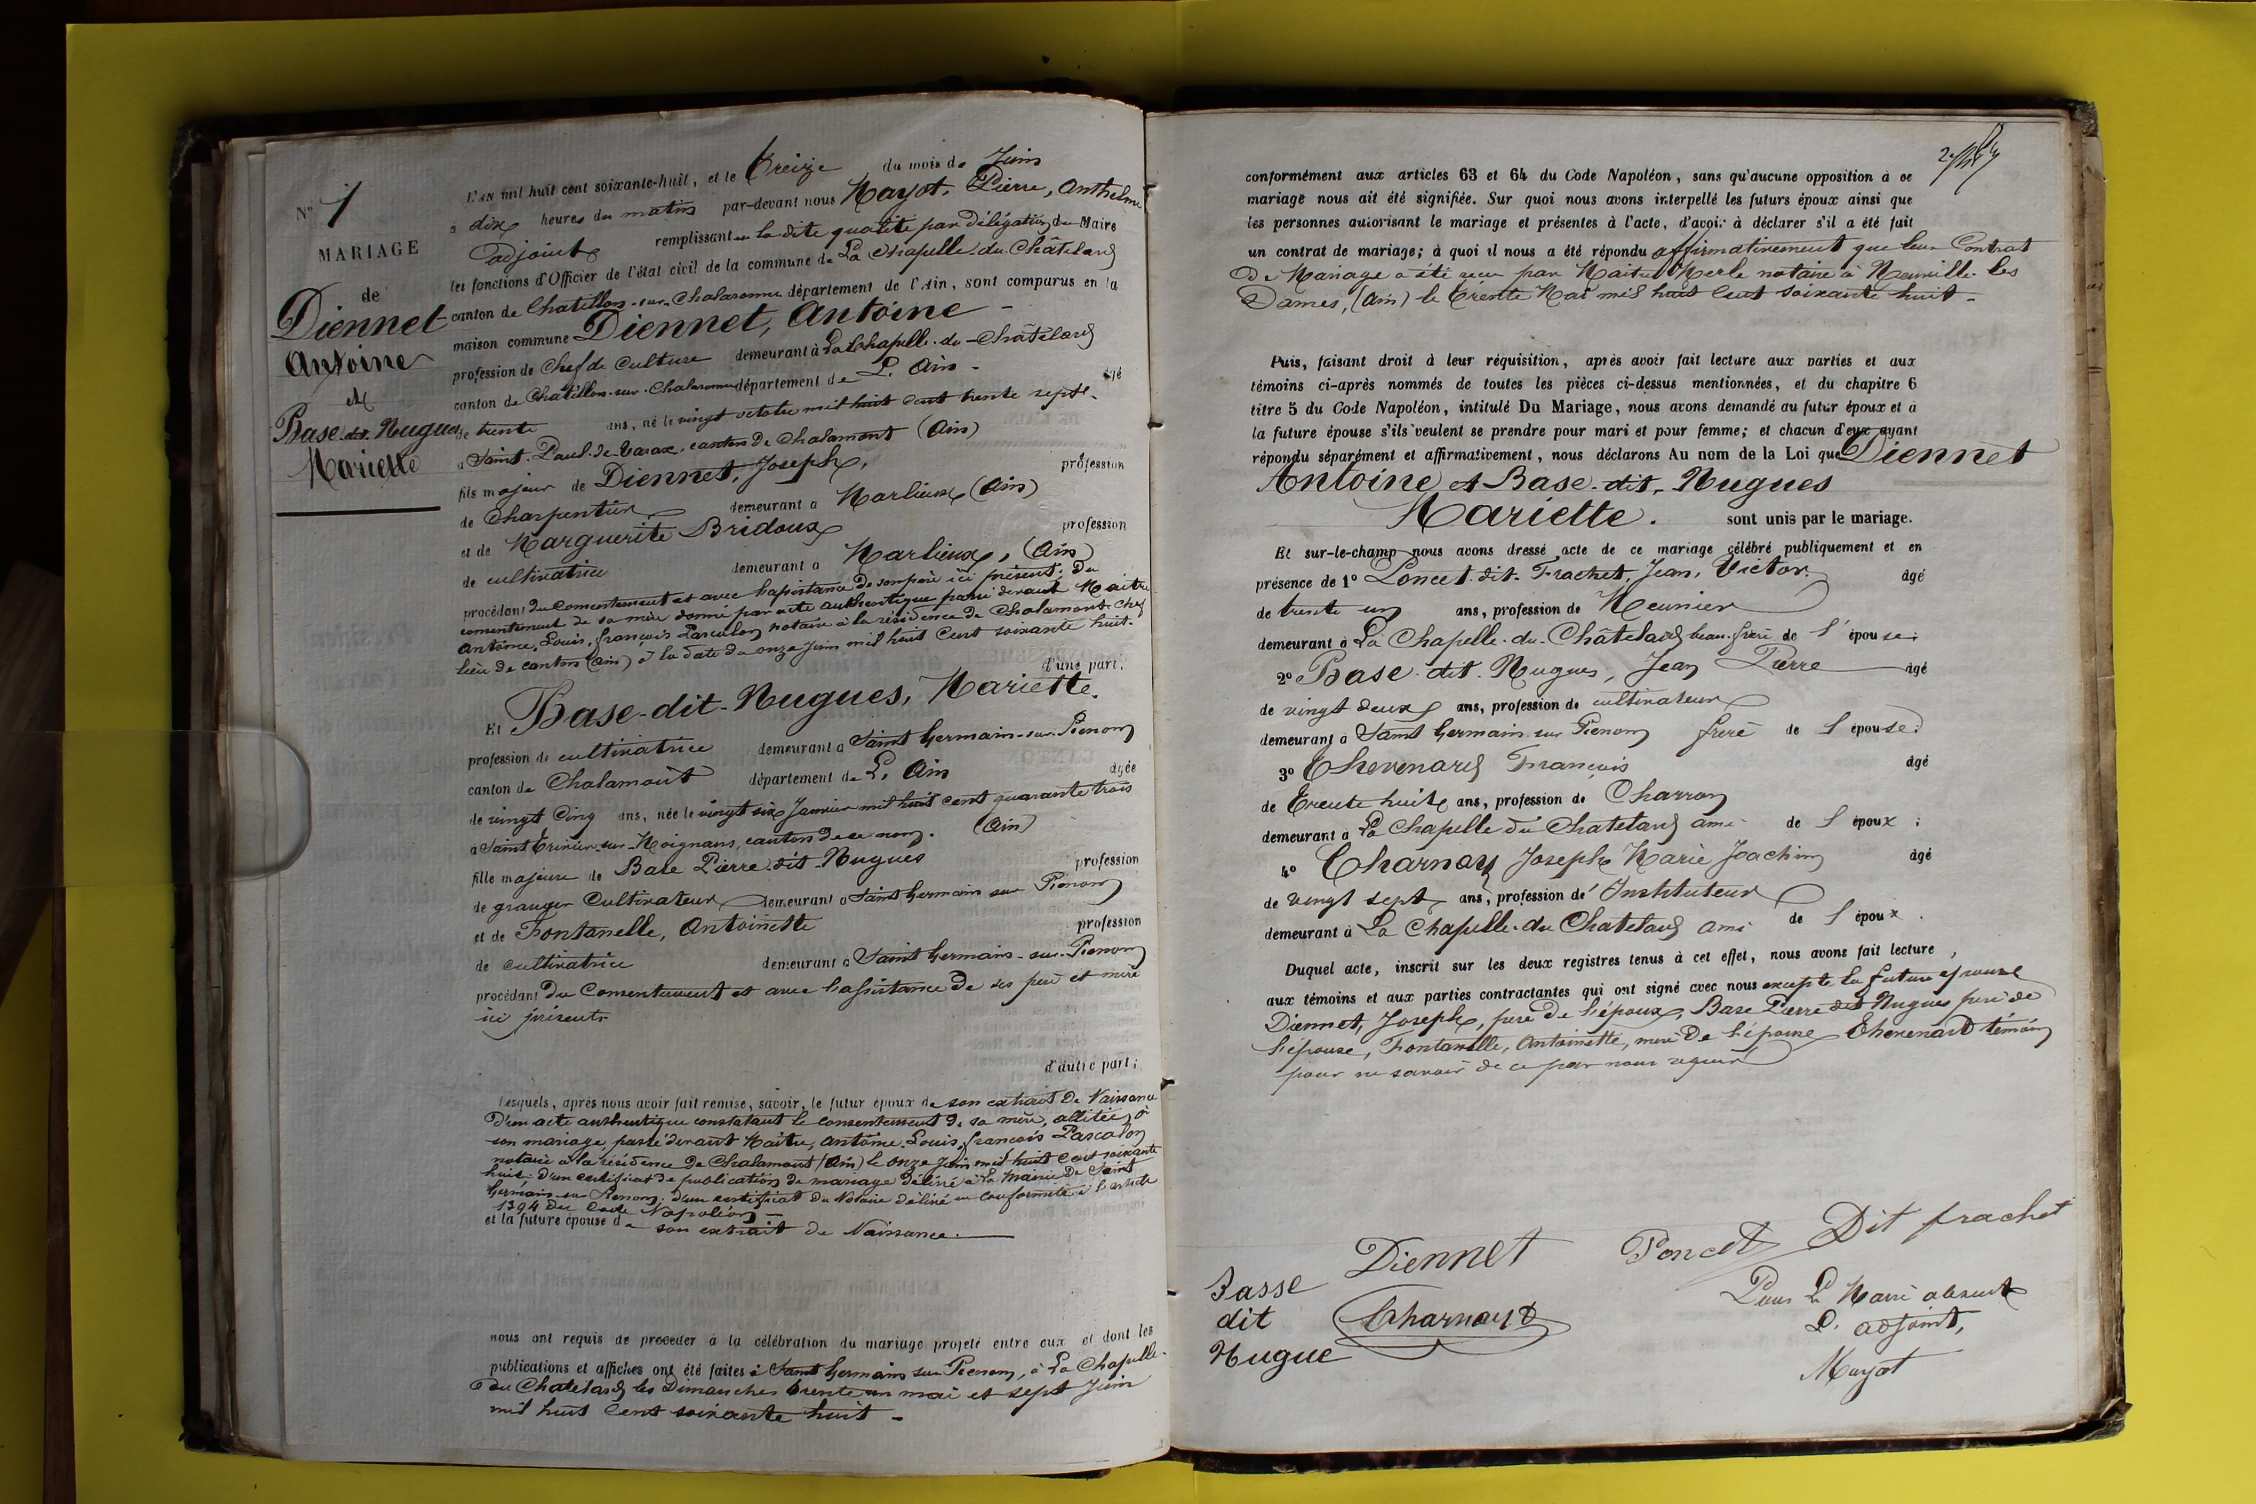 N° 7
MARIAGE
de
Diennet
Antoine
et
Base-dit-Nugues
Mariette
L'AN mil huit cent soixante-huit, et le Treize du mois de Juin
à dix heures du matin par-devant nous Mayot, Pierre, Anthelme
adjoint remplissant en la dite qualité par délégation du Maire
les fonctions d'Officier de l'état civil de la commune de La Chapelle-du-Châtelard
canton de Chatillon-sur-Chalaronne département de l'Ain, sont comparus en la
maison commune Diennet, Antoine -
profession de Chef de Culture demeurant à La Chapelle-du-Châtelard
canton de Chatillon-sur-Chalaronne département de L'Ain - âgé
de trente ans, né le vingt octobre mil huit cent trente sept-
à Saint-Paul-de-Varax, canton de Chalamont (Ain)
fils majeur de Diennet, Joseph, profession
de Charpentier demeurant à Marlieux (Ain)
et de Marguerite Bridoux profession
de cultivatrice demeurant à Marlieux, (Ain)
procédant du consentement et avec l'assistance de son père ici présent, Du
consentement de sa mère donné par acte authentique passé devant Maitre
Antoine, Louis, françois Pascalon notaire à la résidence de Chalamont chef
lieu de canton (Ain) à la date du onze juin mil huit Cent soixante huit.
d'une part;
Et Base-dit-Nugues, Mariette.
profession de cultivatrice demeurant à Saint Germain-sur-Renom
canton de Chalamont département de L'Ain âgée
de vingt Cinq ans, née le vingt six Janvier mil huit cent quarante trois
à Saint Trivier-sur-Moignans, canton de ce nom. (Ain)
fille majeure de Base Pierre dit Nugues profession
de granger Cultivateur demeurant à Saint Germain sur Renom
et de Fontanelle, Antoinette profession
de cultivatrice demeurant à Saint Germain-sur-Renom
procédant du Consentement et avec l'assistance De ses père et mère
ici présents
d'autre part;
Lesquels, après nous avoir fait remise, savoir, le futur époux de son extrait De Naissance
D'un acte authentique constatant le consentement De sa mère, alitée, à
son mariage passé devant Maitre, Antoine-Louis, françois Pascalon
notaire à la résidence De Chalamont (Ain) le onze Juin mil huit Cent soixante
huit; d'un certificat de publication de mariage Délivré à la Mairie De Saint
Germain-sur-Renom; d'un certificat du Notaire Délivré en conformité à l'article
1394 du Code Napoléon -
et la future épouse de son extrait de Naissance.
nous ont requis de procéder à la célébration du mariage projeté entre eux et dont les
publications et affiches ont été faites à Saint Germain sur Renom, à La Chapelle-
du Chatelard les Dimanches trente un mai et sept Juin
mil huit Cent soixante huit -
conformément aux articles 63 et 64 du Code Napoléon, sans qu'aucune opposition à ce
mariage nous ait été signifiée. Sur quoi nous avons interpellé les futurs époux ainsi que
les personnes autorisant le mariage et présentes à l'acte, d'avoir à déclarer s'il a été fait
un contrat de mariage; à quoi il nous a été répondu affirmativement que leur Contrat
De Mariage a été reçu par Maitre Merle notaire à Neuville-les
Dames, (Ain) le trente Mai mil huit Cent soixante huit -
Puis, faisant droit à leur réquisition, après avoir fait lecture aux parties et aux
témoins ci-après nommés de toutes les pièces ci-dessus mentionnées, et du chapitre 6
titre 5 du Code Napoléon, intitulé Du Mariage, nous avons demandé au futur époux et à
la future épouse s'ils veulent se prendre pour mari et pour femme; et chacun d'eux ayant
répondu séparément et affirmativement, nous déclarons Au nom de la Loi que Diennet
Antoine et Base-dit-Nugues
Mariette. sont unis par le mariage.
Et sur-le-champ nous avons dressé acte de ce mariage célébré publiquement et en
présence de 1° Poncet-dit-Frachet, Jean, Victor. âgé
de trente un ans, profession de Meunier
demeurant à La Chapelle-du-Châtelard beau-frère de l'épouse;
2° Base-dit-Nugues, Jean Pierre âgé
de vingt deux ans, profession de cultivateur
demeurant à Saint Germain sur Renom frère de l'épouse;
3° Thevenard François âgé
de Trente huit ans, profession de Charron
demeurant à La Chapelle du Chatelard ami de l'époux;
4° Charnay Joseph Marie Joachim âgé
de vingt sept ans, profession de Instituteur
demeurant à La Chapelle-du Chatelard ami de l'époux.
Duquel acte, inscrit sur les deux registres tenus à cet effet, nous avons fait lecture,
aux témoins et aux parties contractantes qui ont signé avec nous excepté la future épouse
Diennet, Joseph, père De l'époux, Base Pierre dit Nugues père de
l'épouse, Fontanelle, Antoinette, mère De l'épouse Thevenard témoin
pour ne savoir de ce par nous requis
Diennet Poncet Dit frachet
Basse
dit
Nugue
Charnay
Pour Le Maire absent
L'adjoint,
Mayot